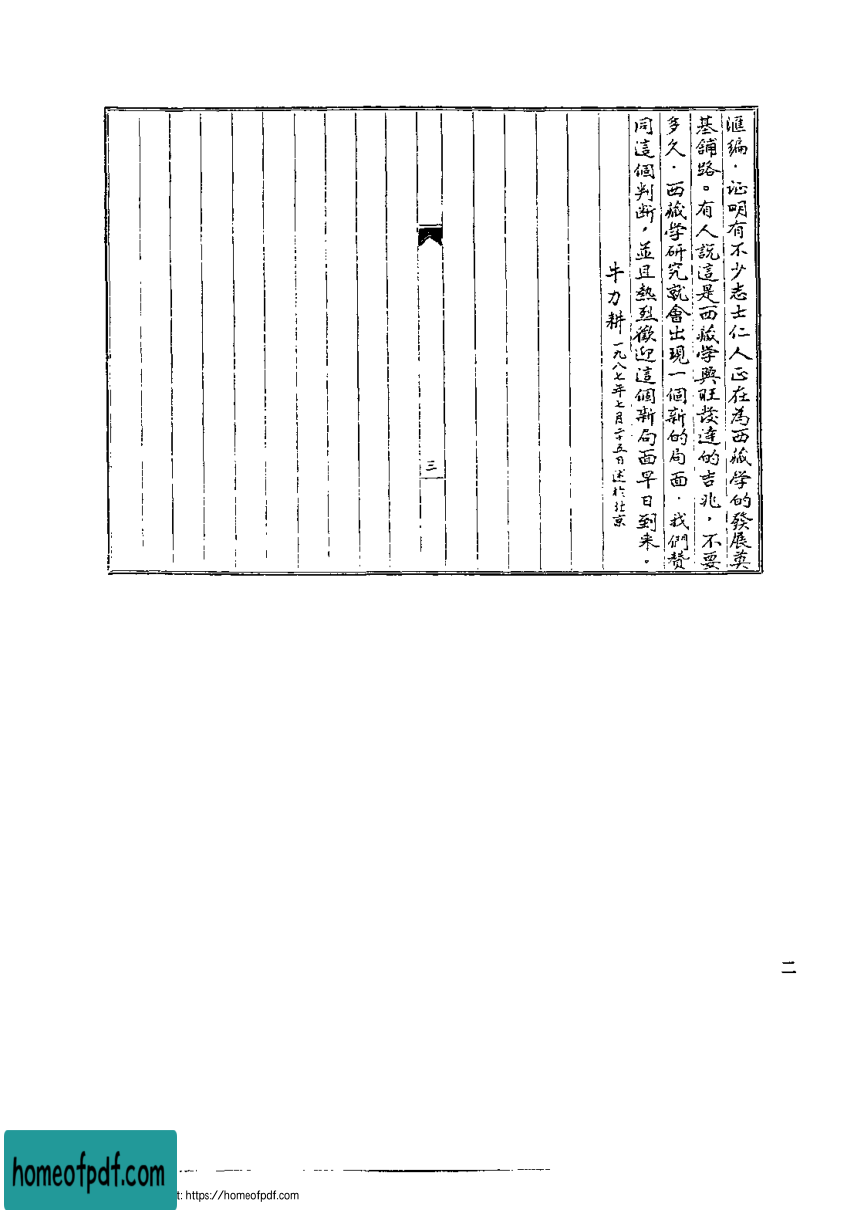 滙编．证明有不少志士仁人正在為西藏学的發展奠
基舖路。有人説這是西藏学興旺發達的吉兆，不要
多久．西藏学研究就會出現一個新的局面．我們赞
同這個判断，並且熱烈歡迎這個新局面早日到来。
牛力耕 一九八七年七月二十五日述於北京
三
二
homeofpdf.com
t: https://homeofpdf.com